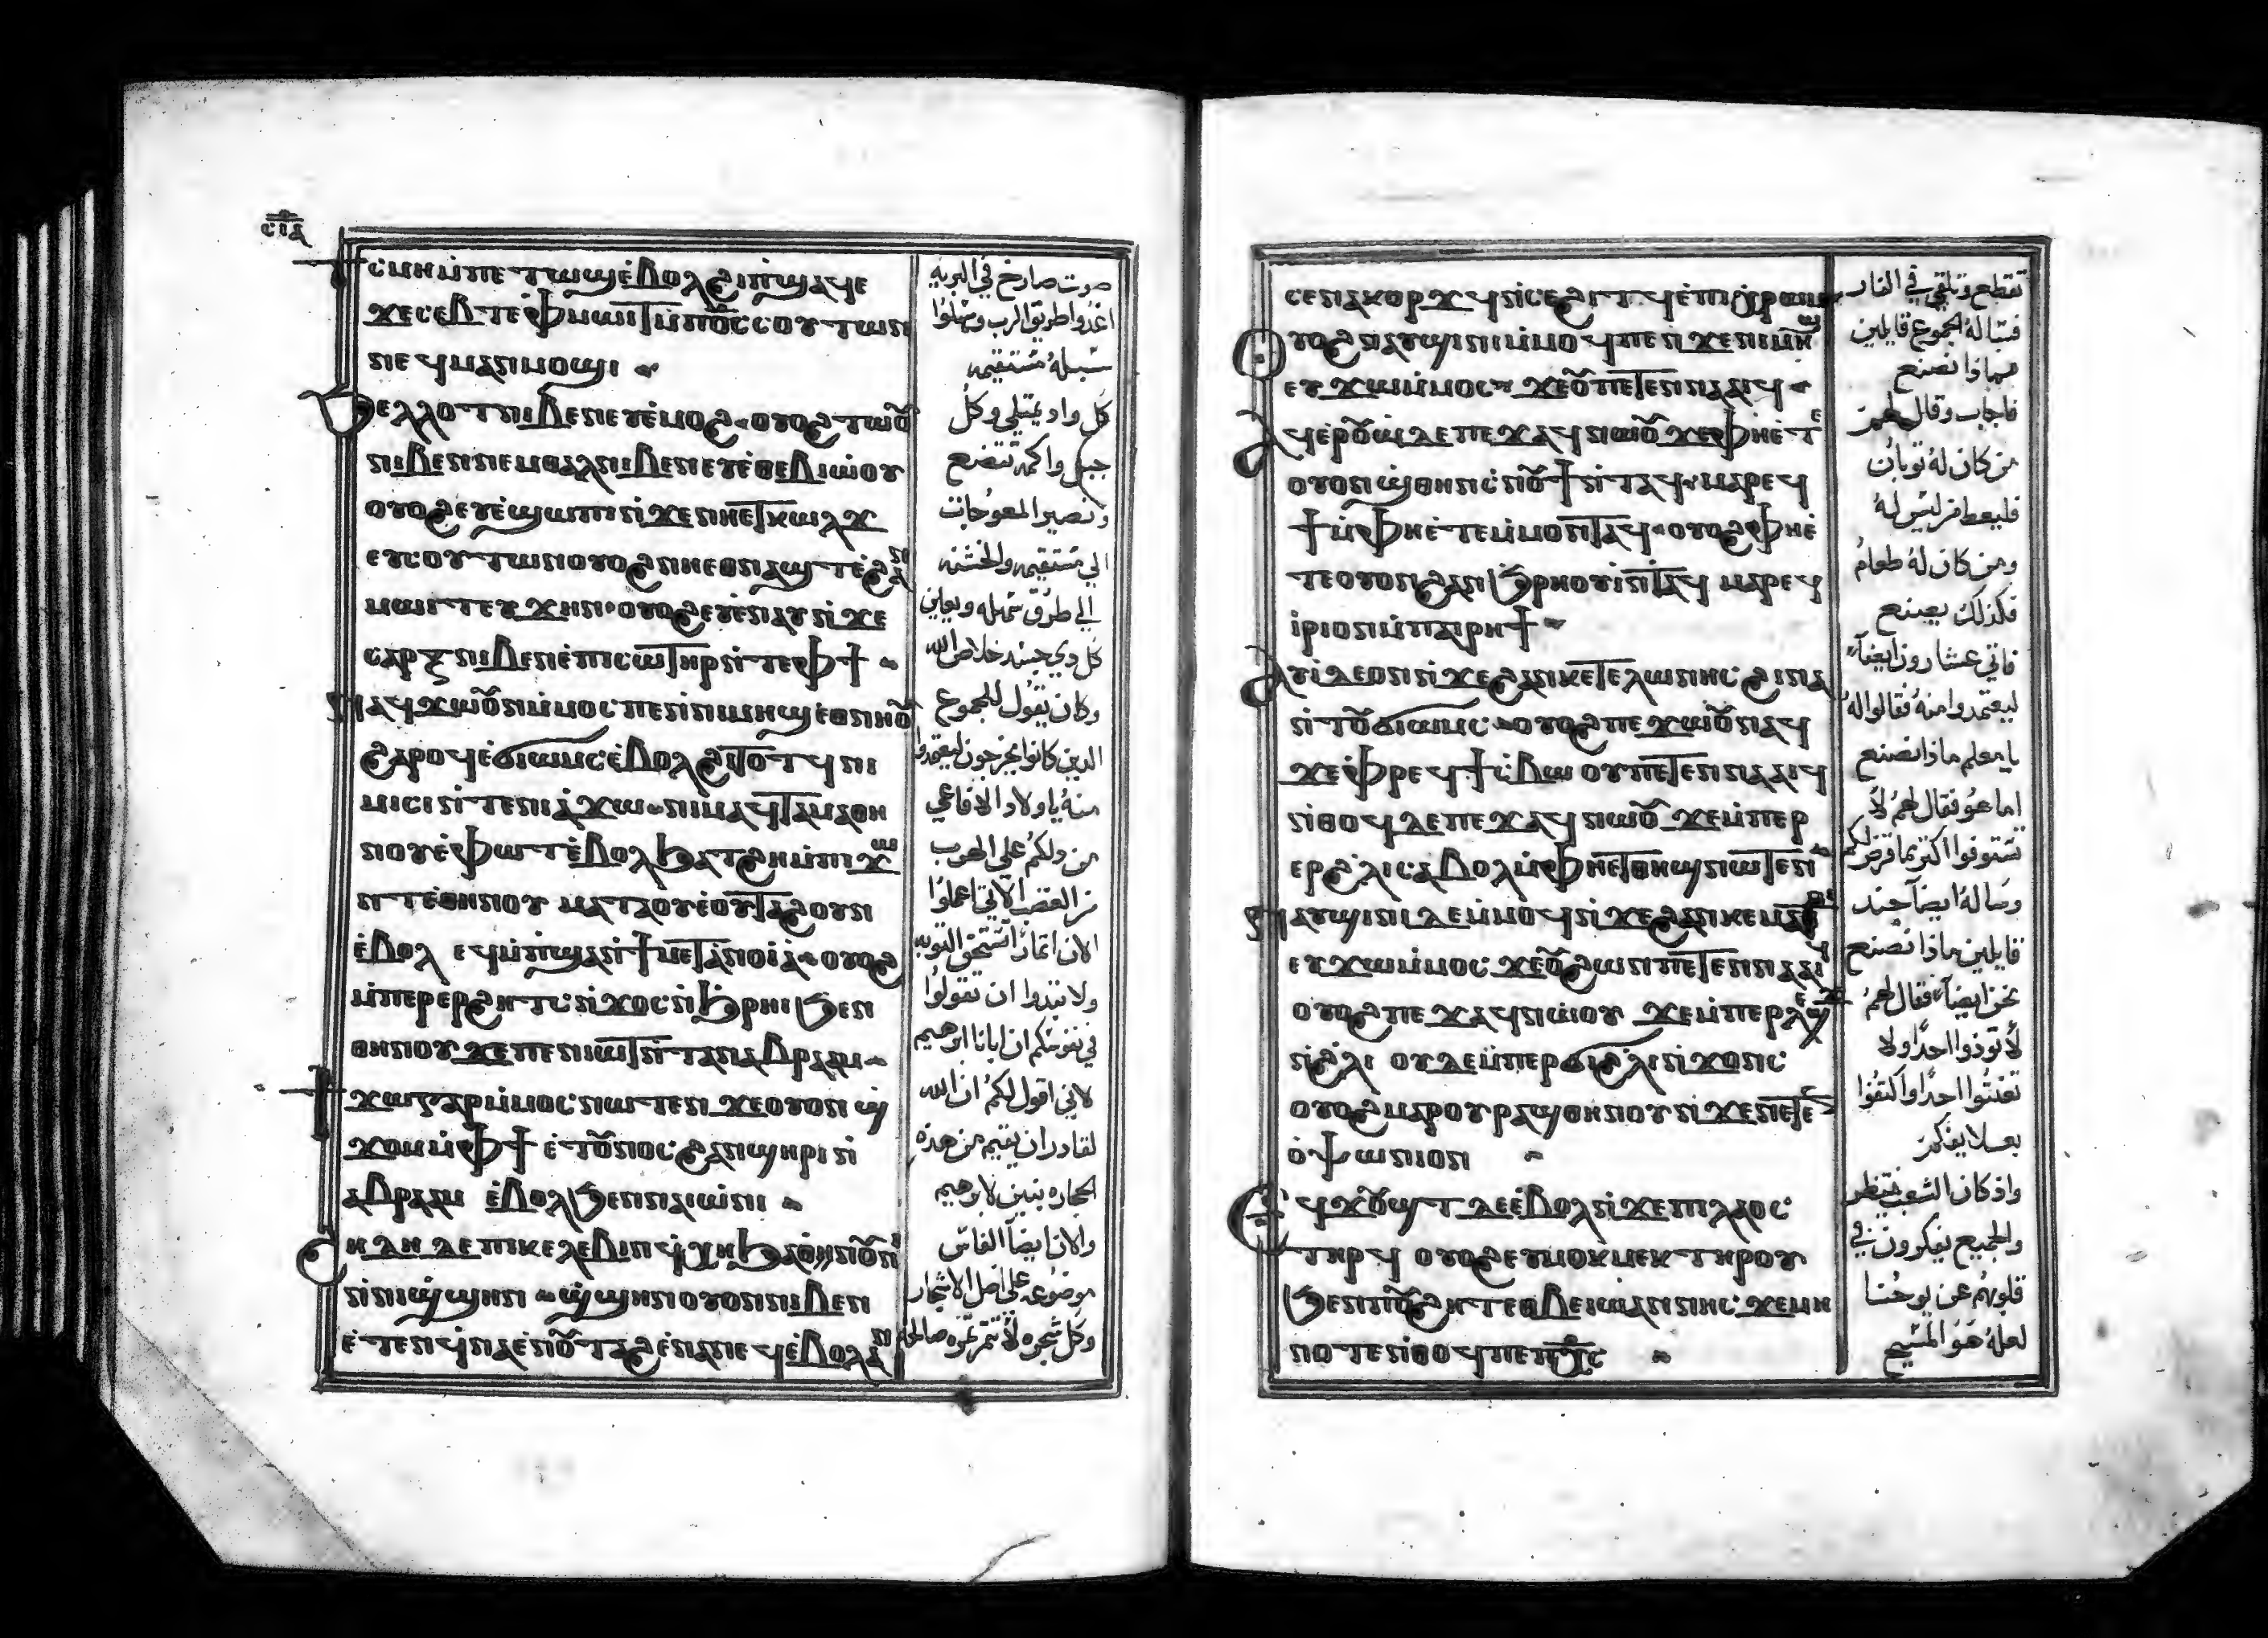 ⲥⲓⲇ
ϯⲥⲙⲏ ⲙ̀ⲡⲉⲧⲱϣ ⲉ̀ⲃⲟⲗ ϩⲓ ⲡ̀ϣⲁϥⲉ
ϫⲉ ⲥⲉⲃⲧⲉ ⲫ̀ⲙⲱⲓⲧ ⲙ̀ⲡⲟ̅ⲥ̅ ⲥⲟⲩⲧⲱⲛ
ⲛⲉϥⲙⲁⲛⲙⲟϣⲓ
ϧⲉⲗⲗⲟⲧ ⲛⲓⲃⲉⲛ ⲉⲩⲉ̀ⲙⲟϩ ⲟⲩⲟϩ ⲧⲱⲟⲩ
ⲛⲓⲃⲉⲛ ⲛⲉⲙ ⲑⲁⲗ ⲛⲓⲃⲉⲛ ⲉⲩⲉ̀ⲑⲉⲃⲓⲱ̀ⲟⲩ
ⲟⲩⲟϩ ⲉⲩⲉ̀ϣⲱⲡⲓ ⲛ̀ϫⲉ ⲛⲏⲉⲧⲕⲱⲗϫ
ⲉⲩⲥⲟⲩⲧⲱⲛ ⲟⲩⲟϩ ⲛⲏⲉⲑⲛⲁϣⲧ ⲉ̀ϩⲁⲛ
ⲙⲱⲓⲧ ⲉⲩϫⲏⲛ ⲟⲩⲟϩ ⲉⲩⲉ̀ⲛⲁⲩ ⲛ̀ϫⲉ
ⲥⲁⲣⲝ ⲛⲓⲃⲉⲛ ⲉ̀ⲡⲓⲥⲱⲧⲏⲣ ⲛ̀ⲧⲉ ⲫϯ
ⲛⲁϥϫⲱⲟⲩⲛ ⲙ̀ⲙⲟⲥ ⲡⲉ ⲛ̀ⲛⲓⲙⲏϣ ⲉⲑⲛⲏⲟⲩ
ϩⲁⲣⲟϥ ⲉ̀ϭⲓⲱⲙⲥ ⲉ̀ⲃⲟⲗ ϩⲓⲧⲟⲧϥ ⲛⲓ
ⲙⲓⲥⲓ ⲛ̀ⲧⲉ ⲛⲓⲁ̀ϫⲱ ⲛⲓⲙ ⲁϥⲧⲁⲙⲁⲑⲏ
ⲛⲟⲩ ⲉ̀ⲫⲱⲧ ⲉ̀ⲃⲟⲗ ϧⲁⲧϩⲏ ⲙ̀ⲡⲓϫⲱ
ⲛⲧ ⲉⲑⲛⲏⲟⲩ ⲙⲁⲧⲁⲟⲩⲉ̀ ⲟⲩⲧⲁϩ ⲟⲩⲛ
ⲉ̀ⲃⲟⲗ ⲉϥⲙ̀ⲡ̀ϣⲁ ⲛ̀ϯⲙⲉⲧⲁⲛⲟⲓⲁ̀ ⲟⲩⲟϩ
ⲙ̀ⲡⲉⲣⲉⲣϩⲏⲧⲥ ⲛ̀ϫⲟⲥ ⲛ̀ϧⲣⲏⲓ ϧⲉⲛ
ⲑⲏⲛⲟⲩ ϫⲉ ⲡⲉⲛⲓⲱⲧ ⲛ̀ⲧⲁⲛ ⲁⲃⲣⲁⲁⲙ
ϯϫⲱ ⲅⲁⲣ ⲙ̀ⲙⲟⲥ ⲛⲱⲧⲉⲛ ϫⲉ ⲟⲩⲟⲛ ϣ̀
ϫⲟⲙ ⲙ̀ⲫϯ ⲉ̀ⲧⲟⲩⲛⲟⲥ ϩⲁⲛϣⲏⲣⲓ ⲛ̀
ⲁⲃⲣⲁⲁⲙ ⲉ̀ⲃⲟⲗ ϧⲉⲛ ⲛⲁⲓⲱ̀ⲛⲓ
ϩⲏⲇⲏ ⲇⲉ ⲡⲓⲕⲉⲗⲉⲃⲓⲛ ϥ̀ⲭⲏ ϧⲁ ⲑ̀ⲛⲟⲩⲛⲓ
ⲛ̀ⲛⲓϣ̀ϣⲏⲛ ϣ̀ϣⲏⲛ ⲟⲩⲟⲛ ⲛⲓⲃⲉⲛ
ⲉ̀ⲧⲉⲛϥ̀ⲛⲁⲉ̀ⲛⲟⲩⲧⲁϩ ⲉ̀ⲛⲁⲛⲉϥ ⲉ̀ⲃⲟⲗ ⲁⲛ
صوت صارخ في البريه
اعدوا طريق الرب وسهلوا
سبله مستقيمه
كل واد يمتلي وكل
جبل واكمه تتضع
وتصير المعوجات
الي مستقيمه والخشنه
الي طرق سهله ويعاين
كل ذي جسد خلاص الله
وكان يقول للجموع
الذين كانوا يخرجون ليعتمدوا
منه يا اولاد الافاعي
من دلكم على الهرب
من الغضب الآتي اعملوا
الان اثمارًا تستحق التوبه
ولا تبتدوا ان تقولوا
في نفوسكم ان ابانا ابرهيم
لاني اقول لكم ان الله
لقادر ان يقيم من هذه
الحجاره بنين لابرهيم
والان ايضا الفاس
موضوعه على اصل الاشجار
وكل شجره لا تثمر ثمره صالحه
ⲥⲉⲛⲁⲕⲟⲣϫϥ ⲛ̀ⲥⲉϩⲓⲧϥ ⲉ̀ⲡⲓⲭ̀ⲣⲱⲙ
ⲟⲩⲟϩ ⲛⲁⲩϣⲓⲛⲓ ⲙ̀ⲙⲟϥ ⲡⲉ ⲛ̀ϫⲉ ⲛⲓⲙⲏϣ
ⲉⲩϫⲱ ⲙ̀ⲙⲟⲥ ϫⲉ ⲟⲩ ⲡⲉⲧⲉⲛⲛⲁⲁⲓϥ
ⲁϥⲉⲣⲟⲩⲱ̀ ⲇⲉ ⲡⲉϫⲁϥ ⲛⲱⲟⲩ ϫⲉ ⲫⲏⲉ̀ⲧⲉ
ⲟⲩⲟⲛ ϣ̀ⲑⲏⲛ ⲥ̀ⲛⲟⲩϯ ⲛ̀ⲧⲁϥ ⲙⲁⲣⲉϥ
ϯ ⲙ̀ⲫⲏⲉ̀ⲧⲉ ⲙ̀ⲙⲟⲛⲧⲁϥ ⲟⲩⲟϩ ⲫⲏⲉ̀
ⲧⲉ ⲟⲩⲟⲛ ϩⲁⲛϧⲣⲏⲟⲩⲓ̀ ⲛ̀ⲧⲁϥ ⲙⲁⲣⲉϥ
ⲓ̀ⲣⲓ ⲟⲛ ⲙ̀ⲡⲁⲓⲣⲏϯ
ⲁⲩⲓ̀ ⲇⲉ ⲟⲛ ⲛ̀ϫⲉ ϩⲁⲛⲕⲉⲧⲉⲗⲱⲛⲏⲥ ϩⲓⲛⲁ
ⲛ̀ⲧⲟⲩϭⲓⲱⲙⲥ ⲟⲩⲟϩ ⲡⲉϫⲱⲟⲩ ⲛⲁϥ
ϫⲉ ⲫ̀ⲣⲉϥϯⲥ̀ⲃⲱ ⲟⲩ ⲡⲉⲧⲉⲛⲛⲁⲁⲓϥ
ⲛ̀ⲑⲟϥ ⲇⲉ ⲡⲉϫⲁϥ ⲛⲱⲟⲩ ϫⲉ ⲙ̀ⲡⲉⲣ
ⲉⲣ ϩ̀ⲗⲓ ⲥⲁⲃⲟⲗ ⲙ̀ⲫⲏⲉⲧⲑⲏϣ ⲛⲱⲧⲉⲛ
ⲛⲁⲩϣⲓⲛⲓ ⲇⲉ ⲙ̀ⲙⲟϥ ⲛ̀ϫⲉ ϩⲁⲛⲕⲉⲙⲁⲧⲟⲓ
ⲉⲩϫⲱ ⲙ̀ⲙⲟⲥ ϫⲉ ⲟⲩ ϩⲱⲛ ⲡⲉⲧⲉⲛⲛⲁⲁⲓϥ
ⲟⲩⲟϩ ⲡⲉϫⲁϥ ⲛⲱ̀ⲟⲩ ϫⲉ ⲙ̀ⲡⲉⲣⲗⲱϫⲉ
ⲛ̀ϩ̀ⲗⲓ ⲟⲩⲇⲉ ⲙ̀ⲡⲉⲣϭⲓ ϩ̀ⲗⲓ ⲛ̀ϫⲟⲛⲥ
ⲟⲩⲟϩ ⲙⲁⲣⲟⲩⲣⲁϣⲑⲏⲛⲟⲩ ⲛ̀ϫⲉ ⲛⲉⲧⲉⲛ
ⲟ̀ⲯⲱⲛⲓⲟⲛ
ⲉϥϫⲟⲩϣⲧ ⲇⲉ ⲉ̀ⲃⲟⲗ ⲛ̀ϫⲉ ⲡⲓⲗⲁⲟⲥ
ⲧⲏⲣϥ ⲟⲩⲟϩ ⲉⲩⲙⲟⲕⲙⲉⲕ ⲧⲏⲣⲟⲩ
ϧⲉⲛ ⲛⲟⲩϩⲏⲧ ⲉⲑⲃⲉ ⲓⲱⲁⲛⲛⲏⲥ ϫⲉ ⲙⲏ
ⲡⲟⲧⲉ ⲛ̀ⲑⲟϥ ⲡⲉ ⲡⲭ̅ⲥ̅
تقطع وتلقي في النار
فسا له الجموع قايلين
بماذا نصنع
فاجاب وقال لهم
من كان له ثوبان
فليعط من ليس له
ومن كان له طعام
فكذلك يصنع
فاتي عشارون ايضاً
ليعتمدوا منه فقالوا له
يا معلم ماذا نصنع
اما هو فقال لهم لا
تستوفوا اكثر مما فرض لكم
وسا له ايضاً جند
قايلين ماذا نصنع
نحن ايضاً فقال لهم
لا تؤذوا احدًا ولا
تعنتوا احدًا واكتفوا
واذ كان الشعب ينتظر
والجميع يفكرون في
قلوبهم عن يوحنا
لعله هو المسيح